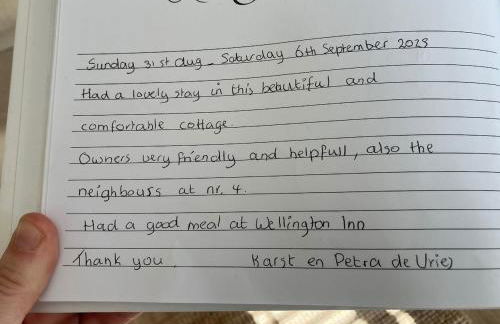 Sunday 31st Aug - Saturday 6th September 2025
Had a lovely stay in this beautiful and
comfortable cottage.
Owners very friendly and helpfull, also the
neighbours at nr. 4.
Had a good meal at Wellington Inn
Thank you. Karst en Petra de Vries